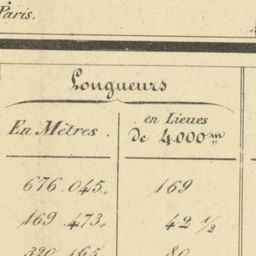 Paris.
Longueurs
En Mètres.
en Lieues
de 4.000 m
676.045. 169
169.473. 42 1/2
320.165 80